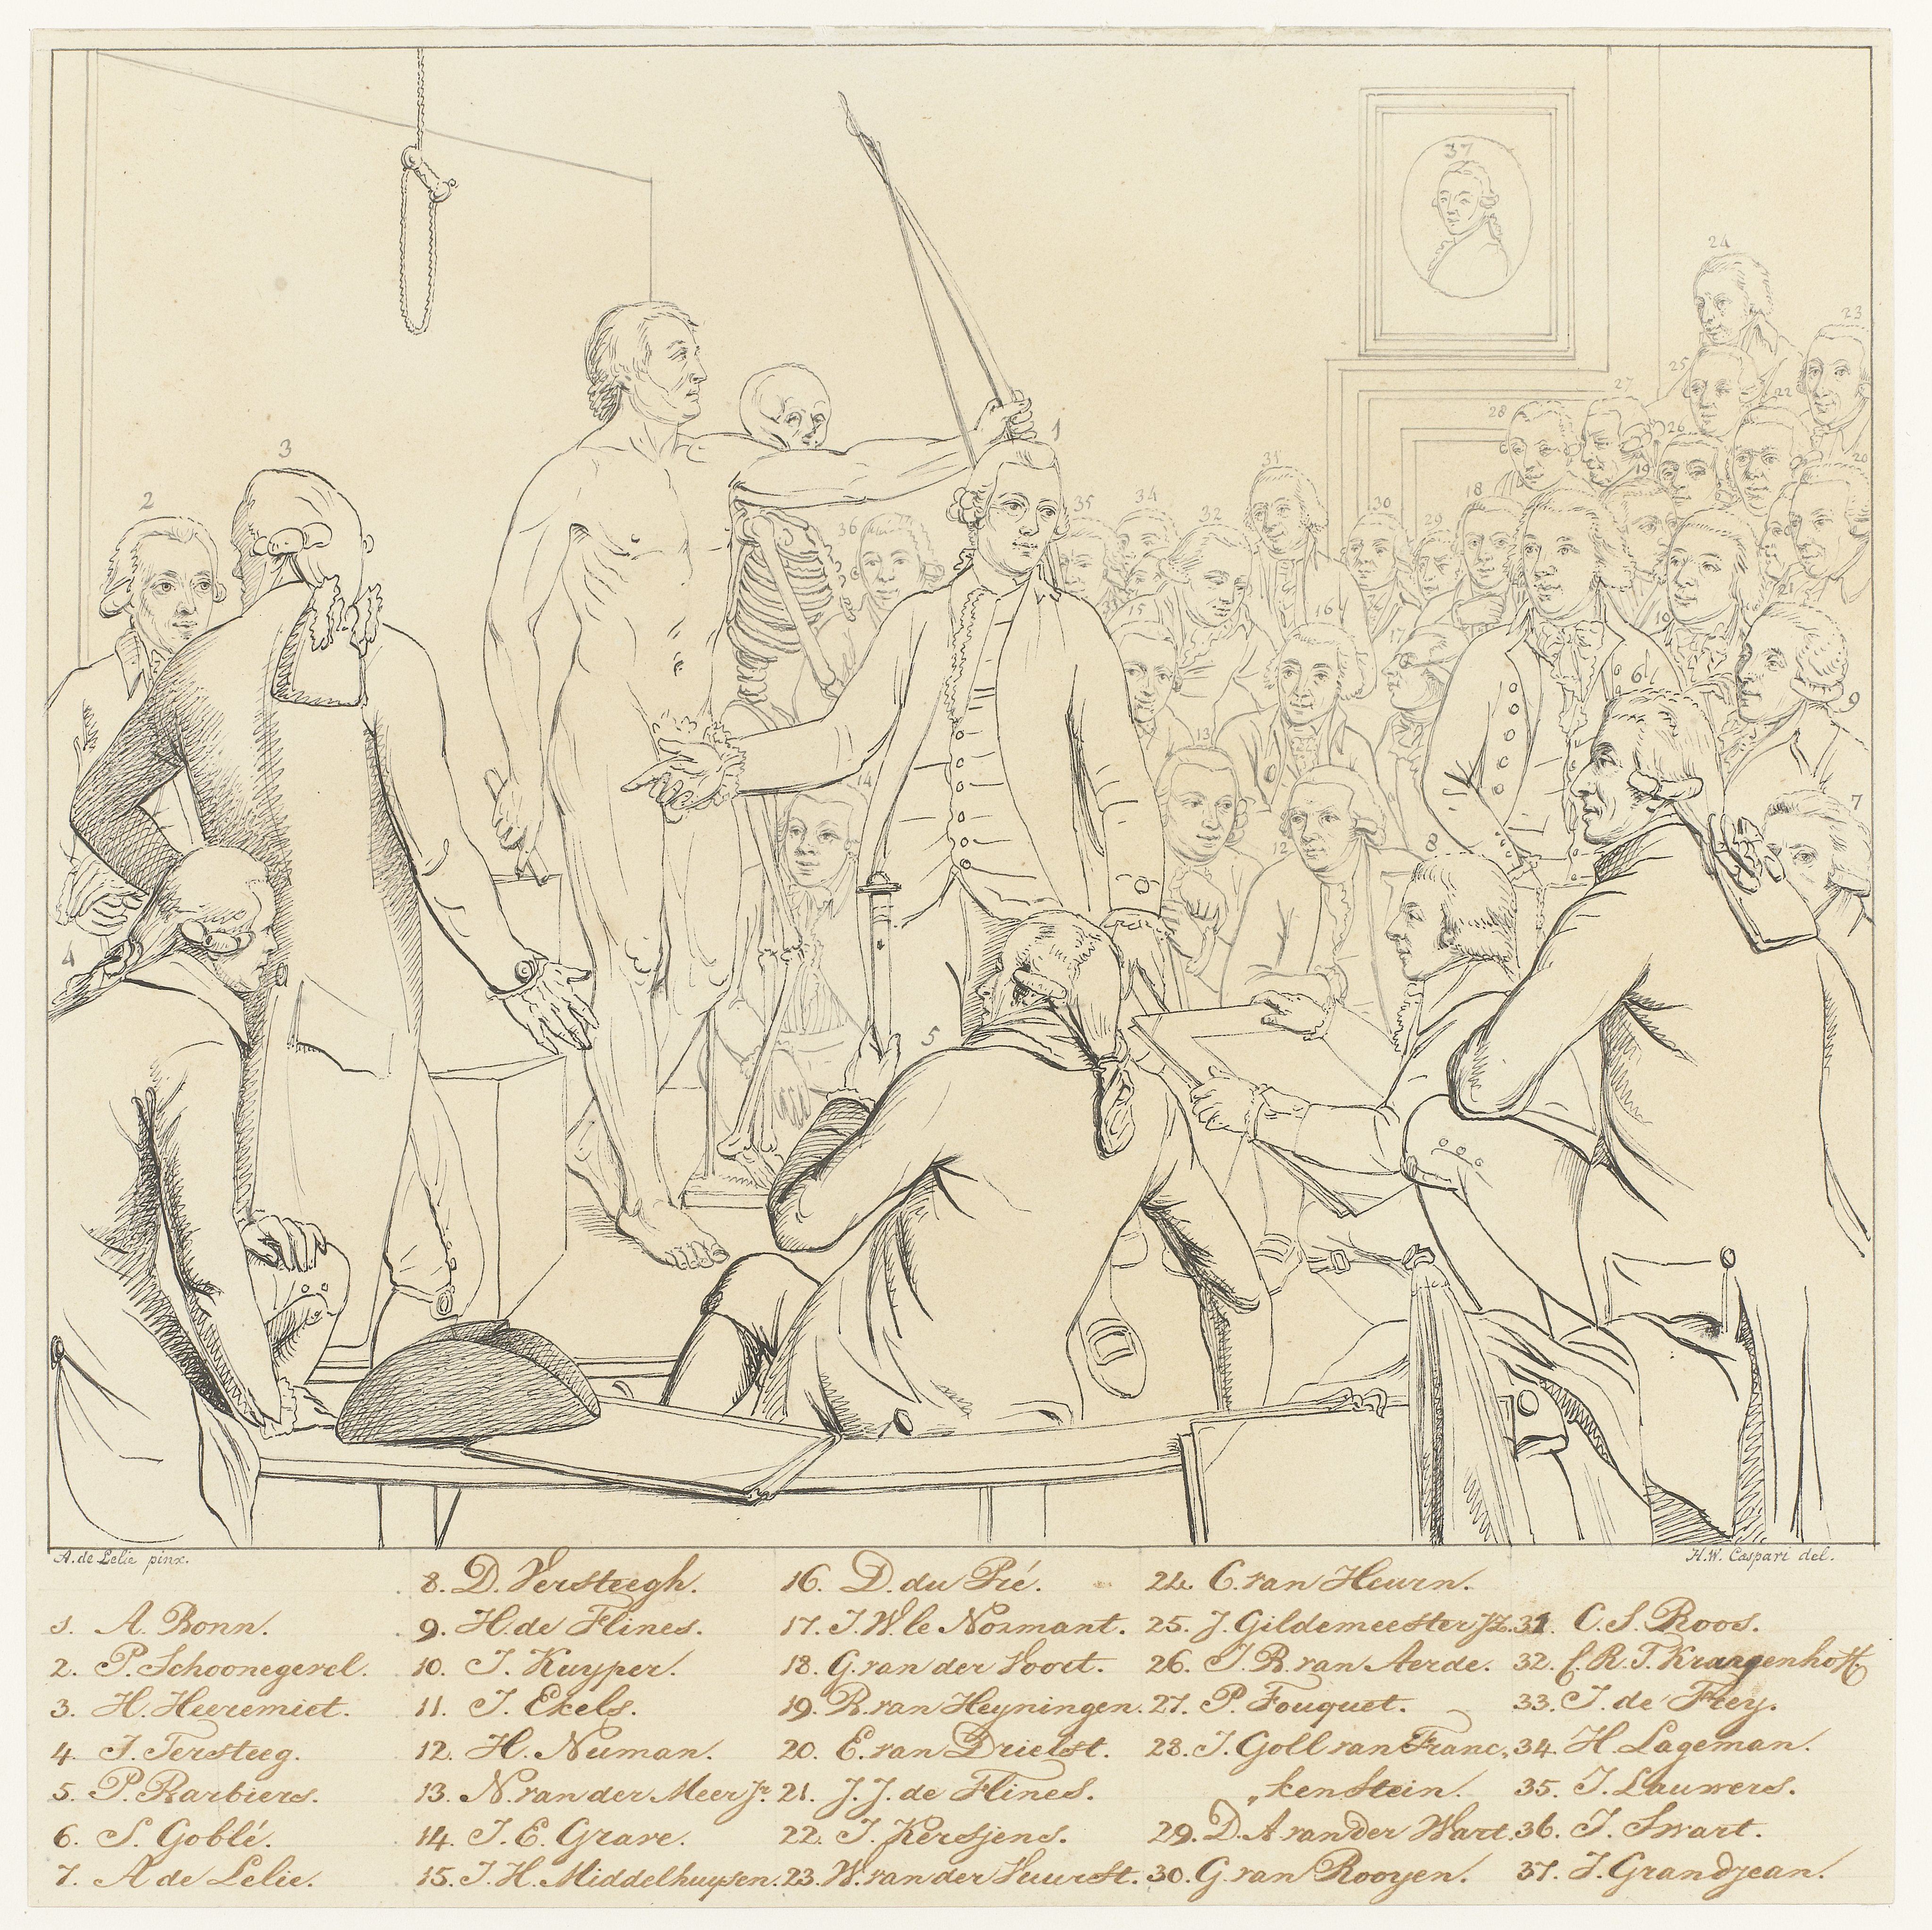 37
24
23
25
27
22
28
26
1
19
20
3
31
18
2
35
34
32
30
29
36
33
15
16
17
21
19
6
9
14
13
7
12
8
4
5
A. de Lelie pinx.
H.W. Caspari del.
1. A. Bonn.
2. P. Schoonegevel.
3. H. Heeremiet.
4. J. Tersteeg.
5. P. Barbiers.
6. S. Goblé.
7. A de Lelie.
8. D. Versteegh.
9. H. de Flines.
10. J. Kuyper.
11. J. Ekels.
12. H. Numan.
13. N. van der Meer Jr.
14. J. E. Grave.
15. J. H. Middelhuysen.
16. D. du Pré.
17. J. W. le Normant.
18. G. van der Voort.
19. R. van Heyningen.
20. E. van Drielst.
21. J. J. de Flines.
22. J. Kersjens.
23. W. van der Vuurst.
24. C. van Heurn.
25. J. Gildemeester Jz.
26. J. R. van Aerde.
27. P. Fouquet.
28. J. Goll van Franc„
„kenstein.
29. D. A. van der Wart.
30. G. van Rooyen.
31. C. S. Roos.
32. C. R. T. Krayenhoff.
33. J. de Frey.
34. H. Lageman.
35. J. Lauwers.
36. J. Swart.
37. J. Grandjean.